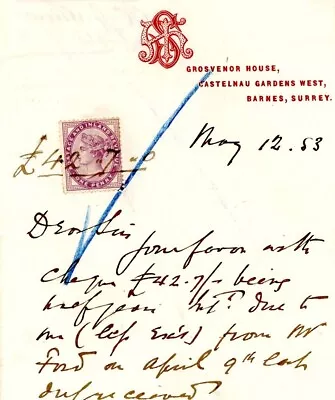 GROSVENOR HOUSE,
CASTELNAU GARDENS WEST,
BARNES, SURREY.
May 12. 83
£42 - 7 - 0
POSTAGE AND INLAND REVENUE
ONE PENNY
Dear Sir
Your favor with
cheque £42.7/- being
half year Int. due to
me (less Exs) from Mr
Ford on April 9th last
duly received